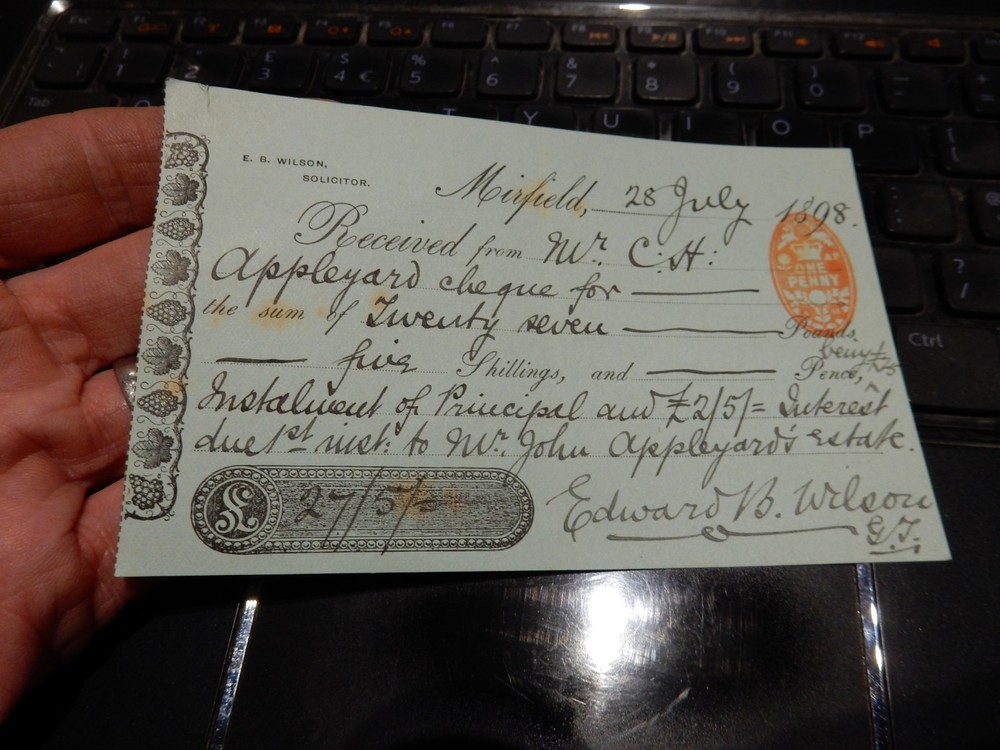 E. B. WILSON,
SOLICITOR.
Mirfield, 28 July 1898.
Received from Mr. C. H.
Appleyard cheque for
the sum of Twenty seven Pounds,
five Shillings, and Pence, being £25
Instalment of Principal and £2/5/= Interest
due 1st inst: to Mr. John Appleyard's Estate.
ONE
PENNY
£ 27/5/=
Edward B. Wilson
Esc F1 F2 F3 F4 F5 F6 F7 F8 F9 F10 F11 F12
1 2 3 4 € 5 % 6 ^ 7 & 8 * 9 ( 0 )
Tab T Y U I O P
Ctrl